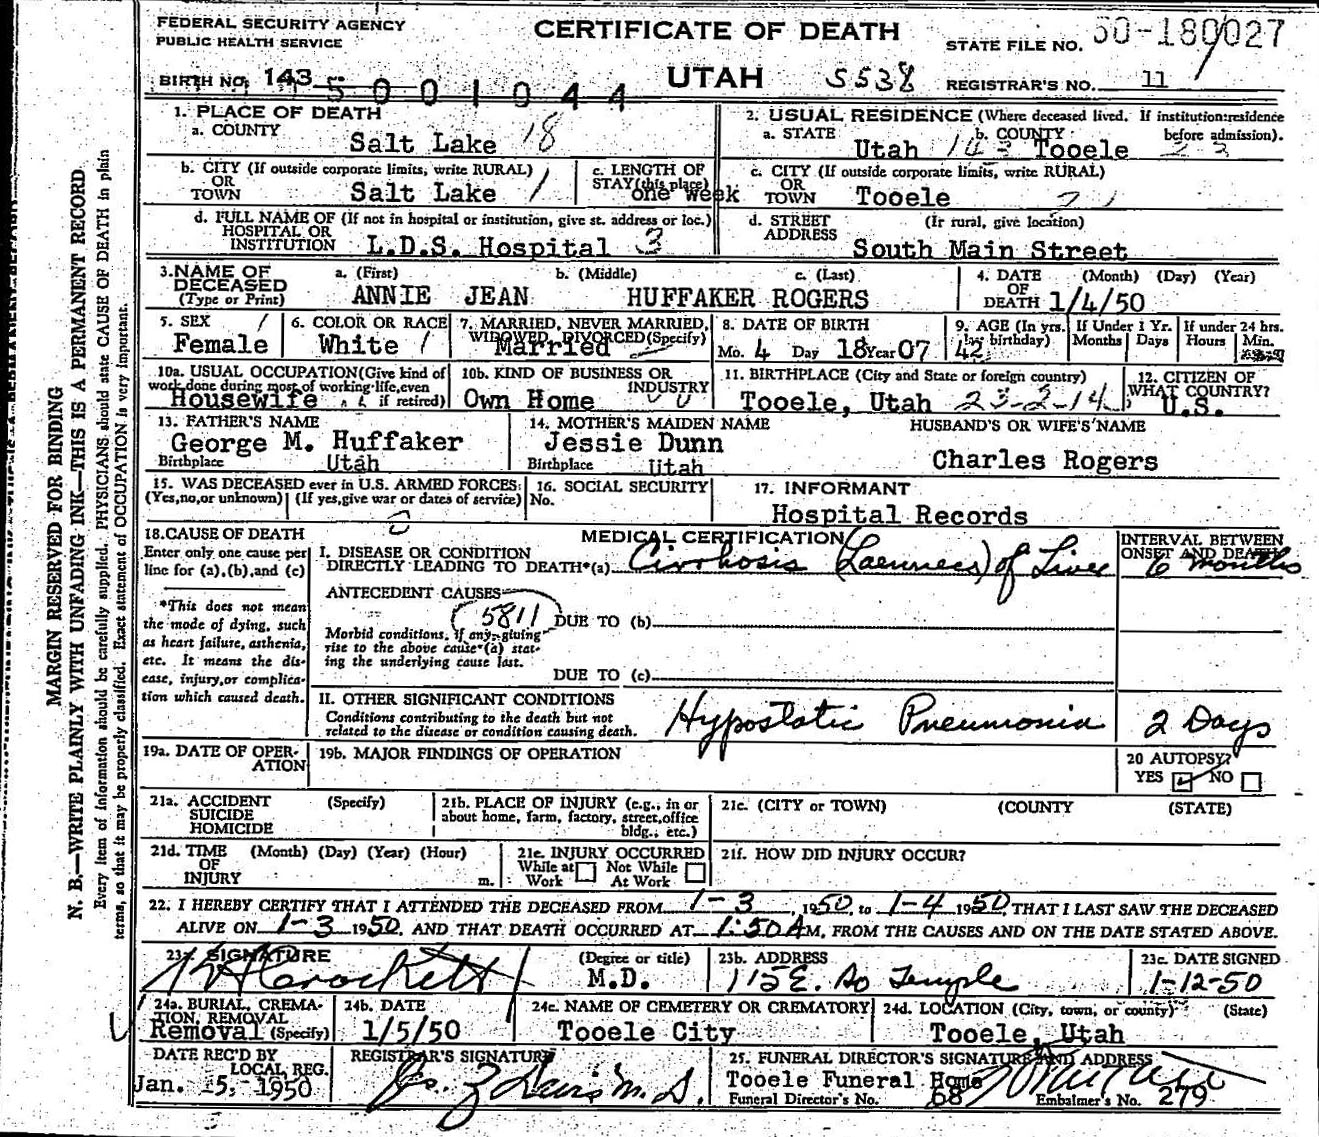 FEDERAL SECURITY AGENCY
PUBLIC HEALTH SERVICE
CERTIFICATE OF DEATH
STATE FILE NO. 50-180027
BIRTH NO. 143
5001044
UTAH 5538
REGISTRAR'S NO. 11
MARGIN RESERVED FOR BINDING
N. B.—WRITE PLAINLY WITH UNFADING INK—THIS IS A PERMANENT RECORD.
Every item of information should be carefully supplied. PHYSICIANS should state CAUSE OF DEATH in plain
terms, so that it may be properly classified. Exact statement of OCCUPATION is very important.
1. PLACE OF DEATH
a. COUNTY
Salt Lake 18
2. USUAL RESIDENCE (Where deceased lived. If institution: residence
before admission).
a. STATE Utah 143 b. COUNTY Tooele 23
b. CITY (If outside corporate limits, write RURAL)
OR
TOWN Salt Lake 1
c. LENGTH OF
STAY (this place)
one week
c. CITY (If outside corporate limits, write RURAL)
OR
TOWN Tooele
d. FULL NAME OF (If not in hospital or institution, give st. address or loc.)
HOSPITAL OR
INSTITUTION L.D.S. Hospital 3
d. STREET (If rural, give location)
ADDRESS
South Main Street
3. NAME OF
DECEASED
(Type or Print)
a. (First) b. (Middle) c. (Last)
ANNIE JEAN HUFFAKER ROGERS
4. DATE (Month) (Day) (Year)
OF
DEATH 1/4/50
5. SEX 1
Female
6. COLOR OR RACE
White 1
7. MARRIED, NEVER MARRIED,
WIDOWED, DIVORCED (Specify)
Married
8. DATE OF BIRTH
Mo. 4 Day 18 Year 07
9. AGE (In yrs.
last birthday)
42
If Under 1 Yr.
Months Days
If under 24 hrs.
Hours Min.
10a. USUAL OCCUPATION (Give kind of
work done during most of working life, even
if retired)
Housewife
10b. KIND OF BUSINESS OR
INDUSTRY
Own Home
11. BIRTHPLACE (City and State or foreign country)
Tooele, Utah 23-2-14
12. CITIZEN OF
WHAT COUNTRY?
U.S.
13. FATHER'S NAME
George M. Huffaker
Birthplace Utah
14. MOTHER'S MAIDEN NAME
Jessie Dunn
Birthplace Utah
HUSBAND'S OR WIFE'S NAME
Charles Rogers
15. WAS DECEASED ever in U.S. ARMED FORCES:
(Yes, no, or unknown) (If yes, give war or dates of service)
16. SOCIAL SECURITY
No.
17. INFORMANT
Hospital Records
18. CAUSE OF DEATH
Enter only one cause per
line for (a), (b), and (c)
*This does not mean
the mode of dying, such
as heart failure, asthenia,
etc. It means the dis-
ease, injury, or complica-
tion which caused death.
MEDICAL CERTIFICATION
I. DISEASE OR CONDITION
DIRECTLY LEADING TO DEATH*(a) Cirrhosis (Laennecs) of Liver
INTERVAL BETWEEN
ONSET AND DEATH
6 months
ANTECEDENT CAUSES
5811
DUE TO (b)
Morbid conditions, if any, giving
rise to the above cause (a) stat-
ing the underlying cause last.
DUE TO (c)
II. OTHER SIGNIFICANT CONDITIONS
Conditions contributing to the death but not
related to the disease or condition causing death.
Hypostatic Pneumonia 2 Days
19a. DATE OF OPER-
ATION
19b. MAJOR FINDINGS OF OPERATION
20 AUTOPSY?
YES NO
21a. ACCIDENT (Specify)
SUICIDE
HOMICIDE
21b. PLACE OF INJURY (e.g., in or
about home, farm, factory, street, office
bldg., etc.)
21c. (CITY or TOWN) (COUNTY) (STATE)
21d. TIME (Month) (Day) (Year) (Hour)
OF
INJURY m.
21e. INJURY OCCURRED
While at Work Not While At Work
21f. HOW DID INJURY OCCUR?
22. I HEREBY CERTIFY THAT I ATTENDED THE DECEASED FROM 1-3, 1950, to 1-4 1950, THAT I LAST SAW THE DECEASED
ALIVE ON 1-3 1950, AND THAT DEATH OCCURRED AT 1:50 A M, FROM THE CAUSES AND ON THE DATE STATED ABOVE.
23a. SIGNATURE
Crockett
(Degree or title)
M.D.
23b. ADDRESS
115 E. So Temple
23c. DATE SIGNED
1-12-50
24a. BURIAL, CREMA-
TION, REMOVAL
Removal (Specify)
24b. DATE
1/5/50
24c. NAME OF CEMETERY OR CREMATORY
Tooele City
24d. LOCATION (City, town, or county) (State)
Tooele, Utah
DATE REC'D BY
LOCAL REG.
Jan. 5, 1950
REGISTRAR'S SIGNATURE
M.D.
25. FUNERAL DIRECTOR'S SIGNATURE AND ADDRESS
Tooele Funeral Home
Funeral Director's No. 68 Embalmer's No. 279